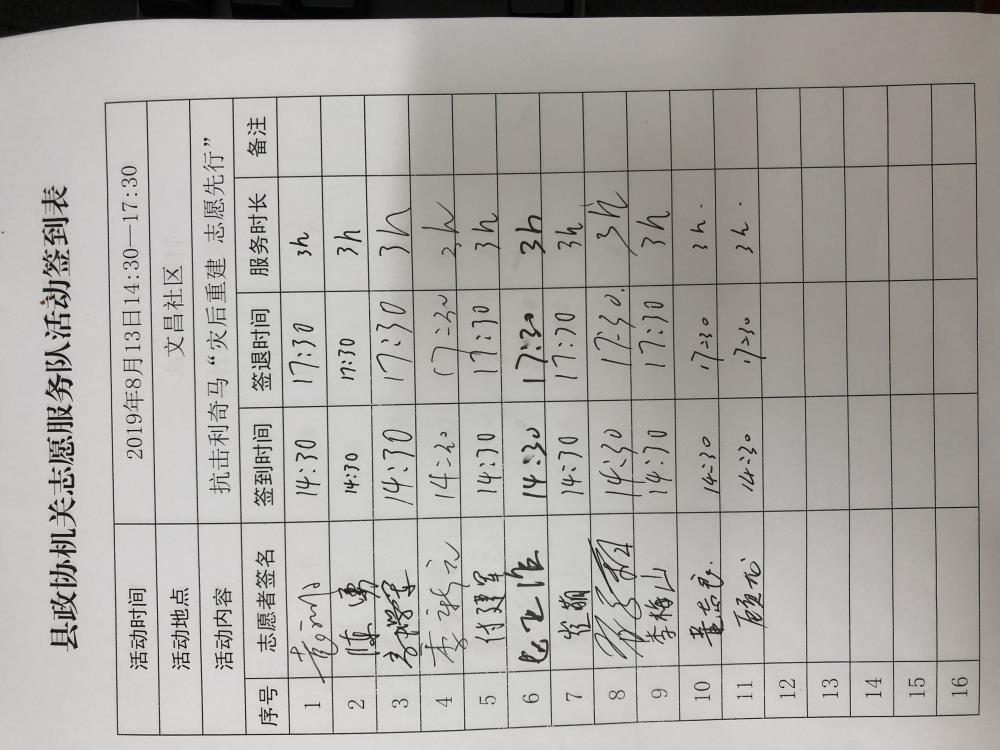 县政协机关志愿服务队活动签到表
活动时间 2019年8月13日14:30—17:30
活动地点 文昌社区
活动内容 抗击利奇马“灾后重建 志愿先行”
序号 志愿者签名 签到时间 签退时间 服务时长 备注
1 14:30 17:30 3h
2 陈勇 14:30 17:30 3h
3 14:30 17:30 3h
4 李新元 14:30 17:30 3h
5 付建军 14:30 17:30 3h
6 14:30 17:30 3h
7 14:30 17:30 3h
8 14:30 17:30. 3h
9 李梅山 14:30 17:30 3h
10 董志良. 14:30 17:30 3h.
11 顾龙 14:30 17:30 3h.
12
13
14
15
16